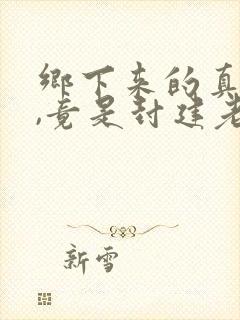 鄉下來的真
,竟是封建老
新雪